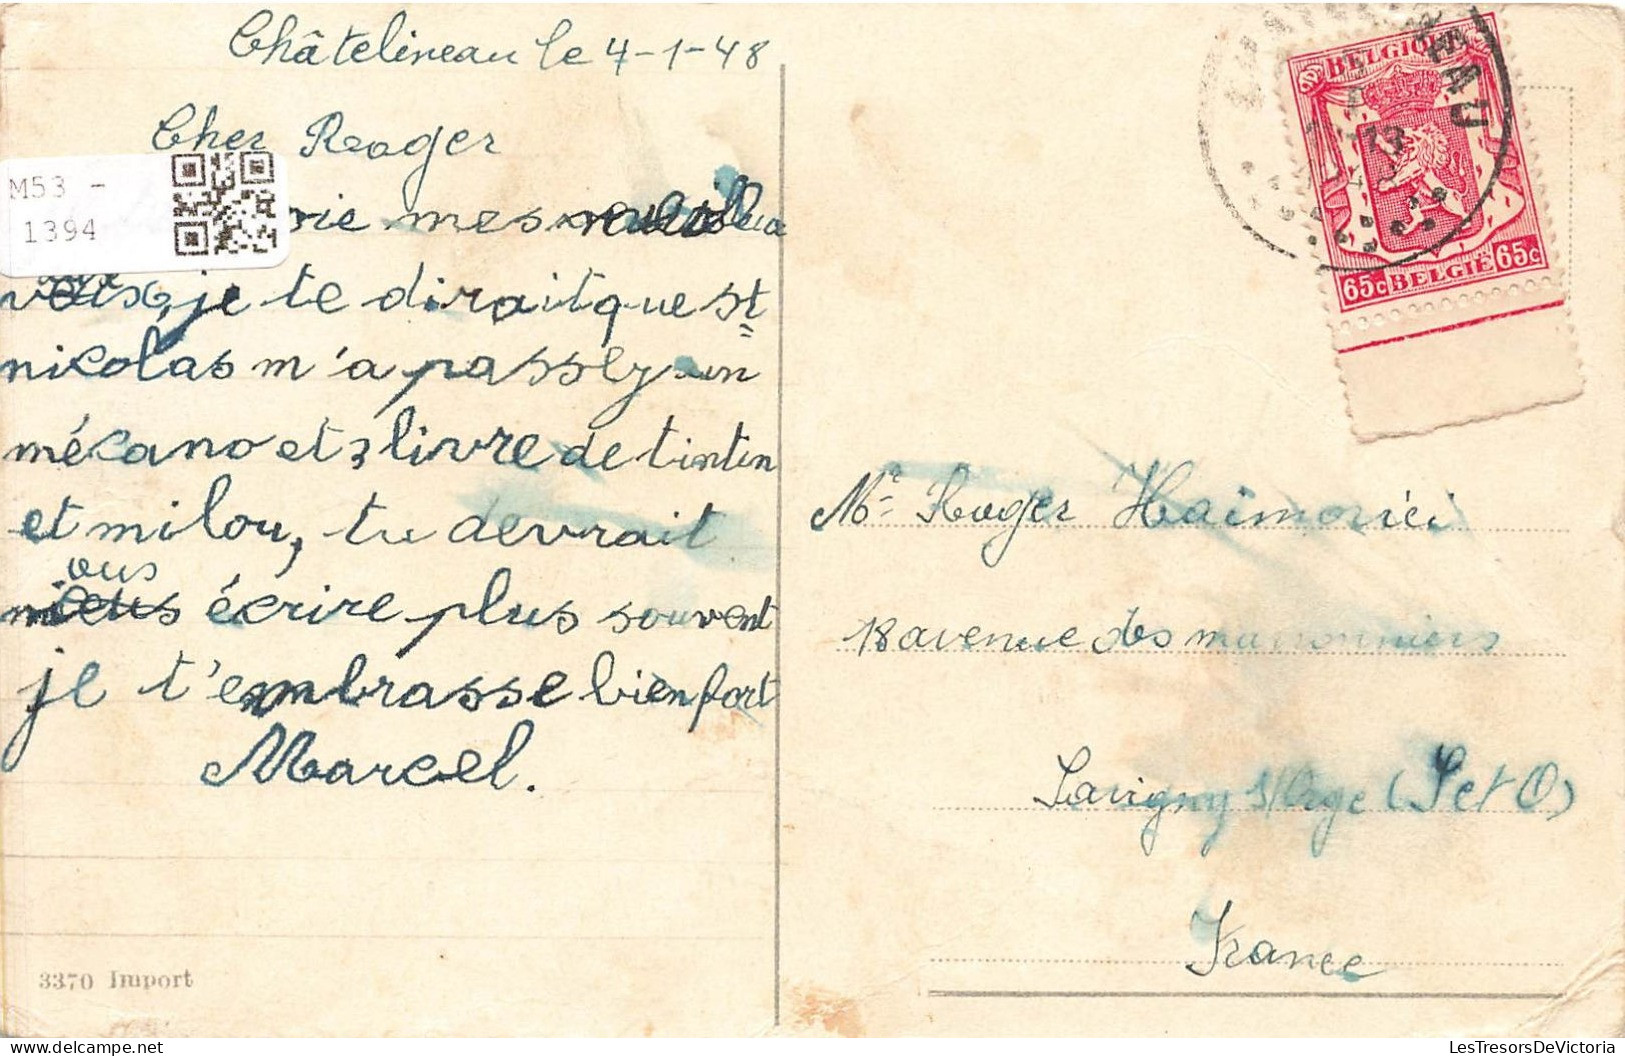 Châtelineau le 4-1-48
Cher Roger
M53 -
1394
mes
je te dirait que st
nicolas m'a passey un
mécano et 3 livre de tintin
et milou, tu devrait
ous
écrire plus souvent
je t'embrasse bien fort
Marcel.
3370 Import
BELGIQUE
65c BELGIË 65c
Mr Roger Haimorici
18 avenue des marronniers
Savigny s/Orge (S et O)
France
LesTresorsDeVictoria